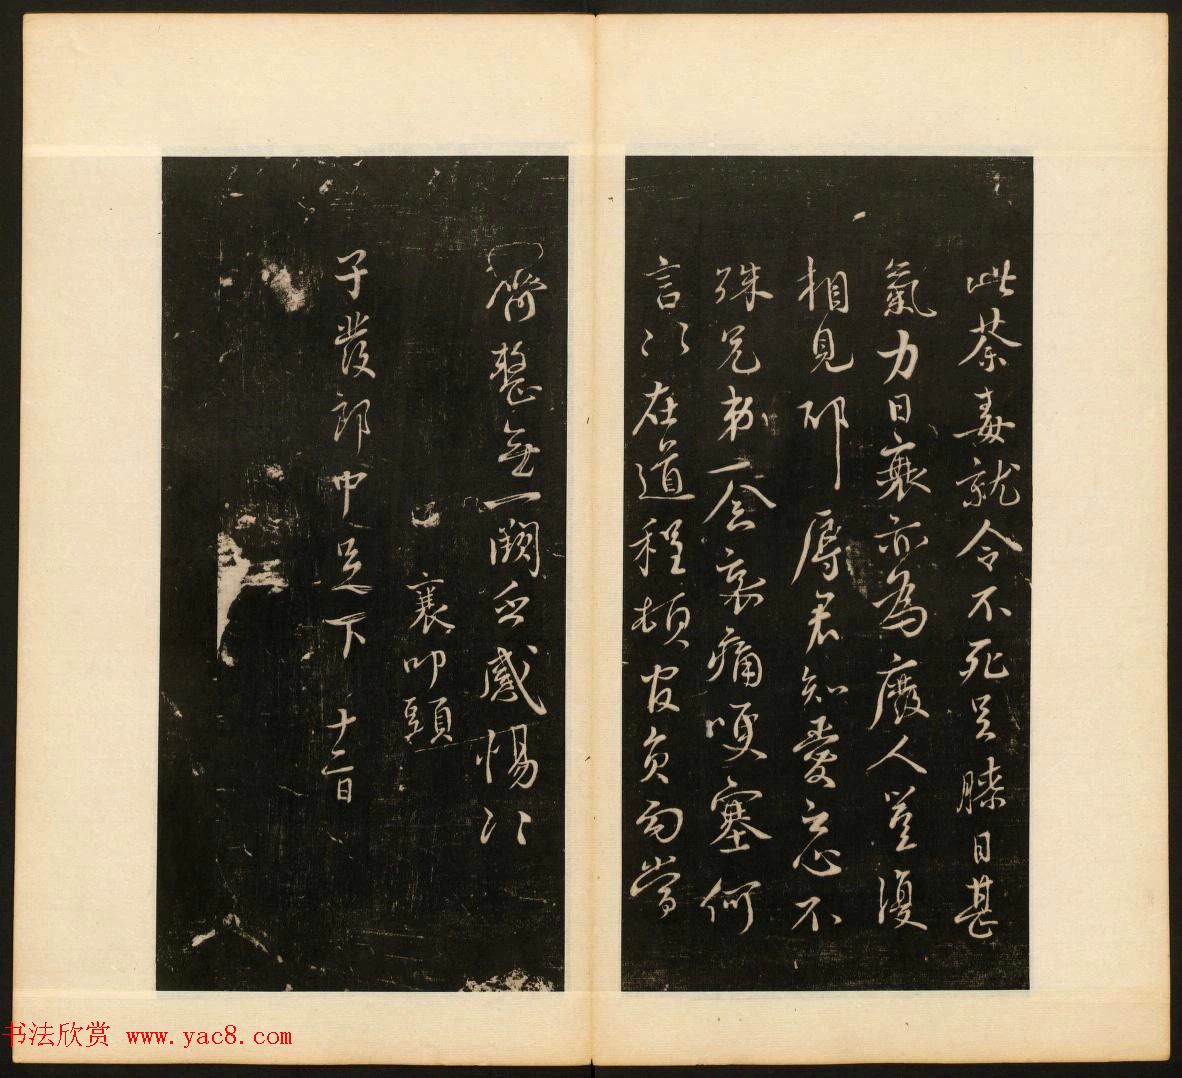 此荼毒就令不死足膝日甚
氣力日衰亦為廢人豈復
相見邪辱君知愛之心不
殊兄弟一念哀痛哽塞何
言〻〻在道程頓官員勾當
齊整無一闕乏感惕〻〻
襄叩頭
子發郎中足下 十二日
书法欣赏 www.yac8.com